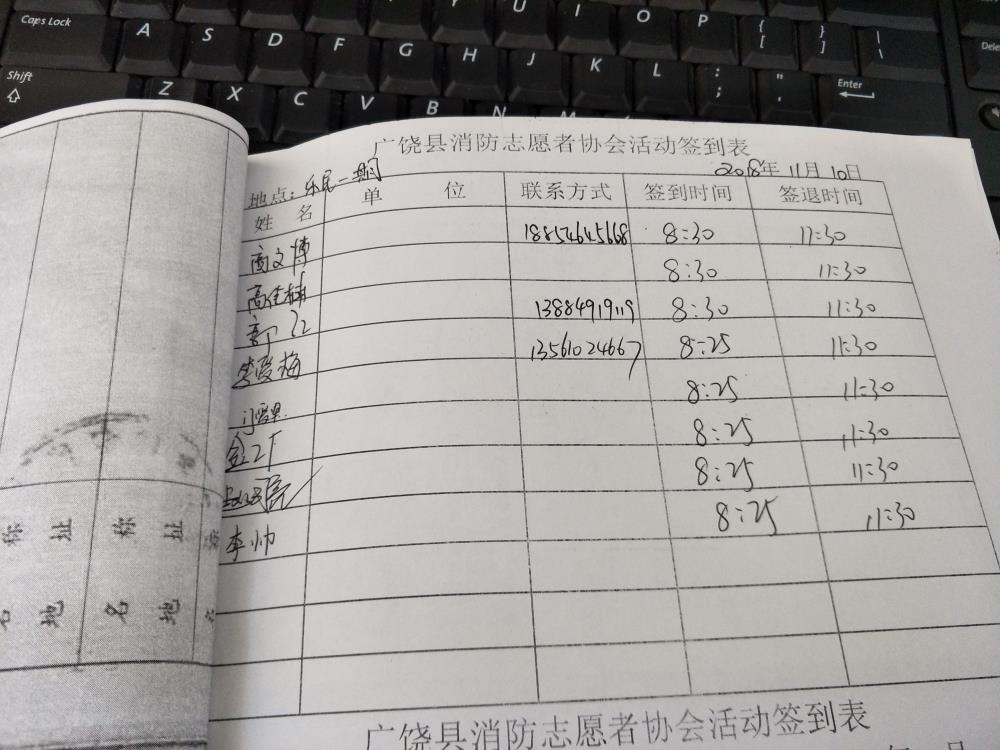 Caps Lock
A
S
D
F
G
H
J
K
L
Y
U
I
O
P
{ [
} ]
| \
Dele
Shift
Z
X
C
V
B
N
M
: ;
" '
Enter
广饶县消防志愿者协会活动签到表
2018年 11月 10日
地点:乐民一期
姓 名 单 位 联系方式 签到时间 签退时间
高文博 18854645668 8:30 11:30
高佳楠 8:30 11:30
13884919119 8:30 11:30
李爱梅 13561024667 8:25 11:30
8:25 11:30
8:25 11:30
8:25 11:30
李帅 8:25 11:30
广饶县消防志愿者协会活动签到表
年 月
称 址 称 址
名 地 名 地